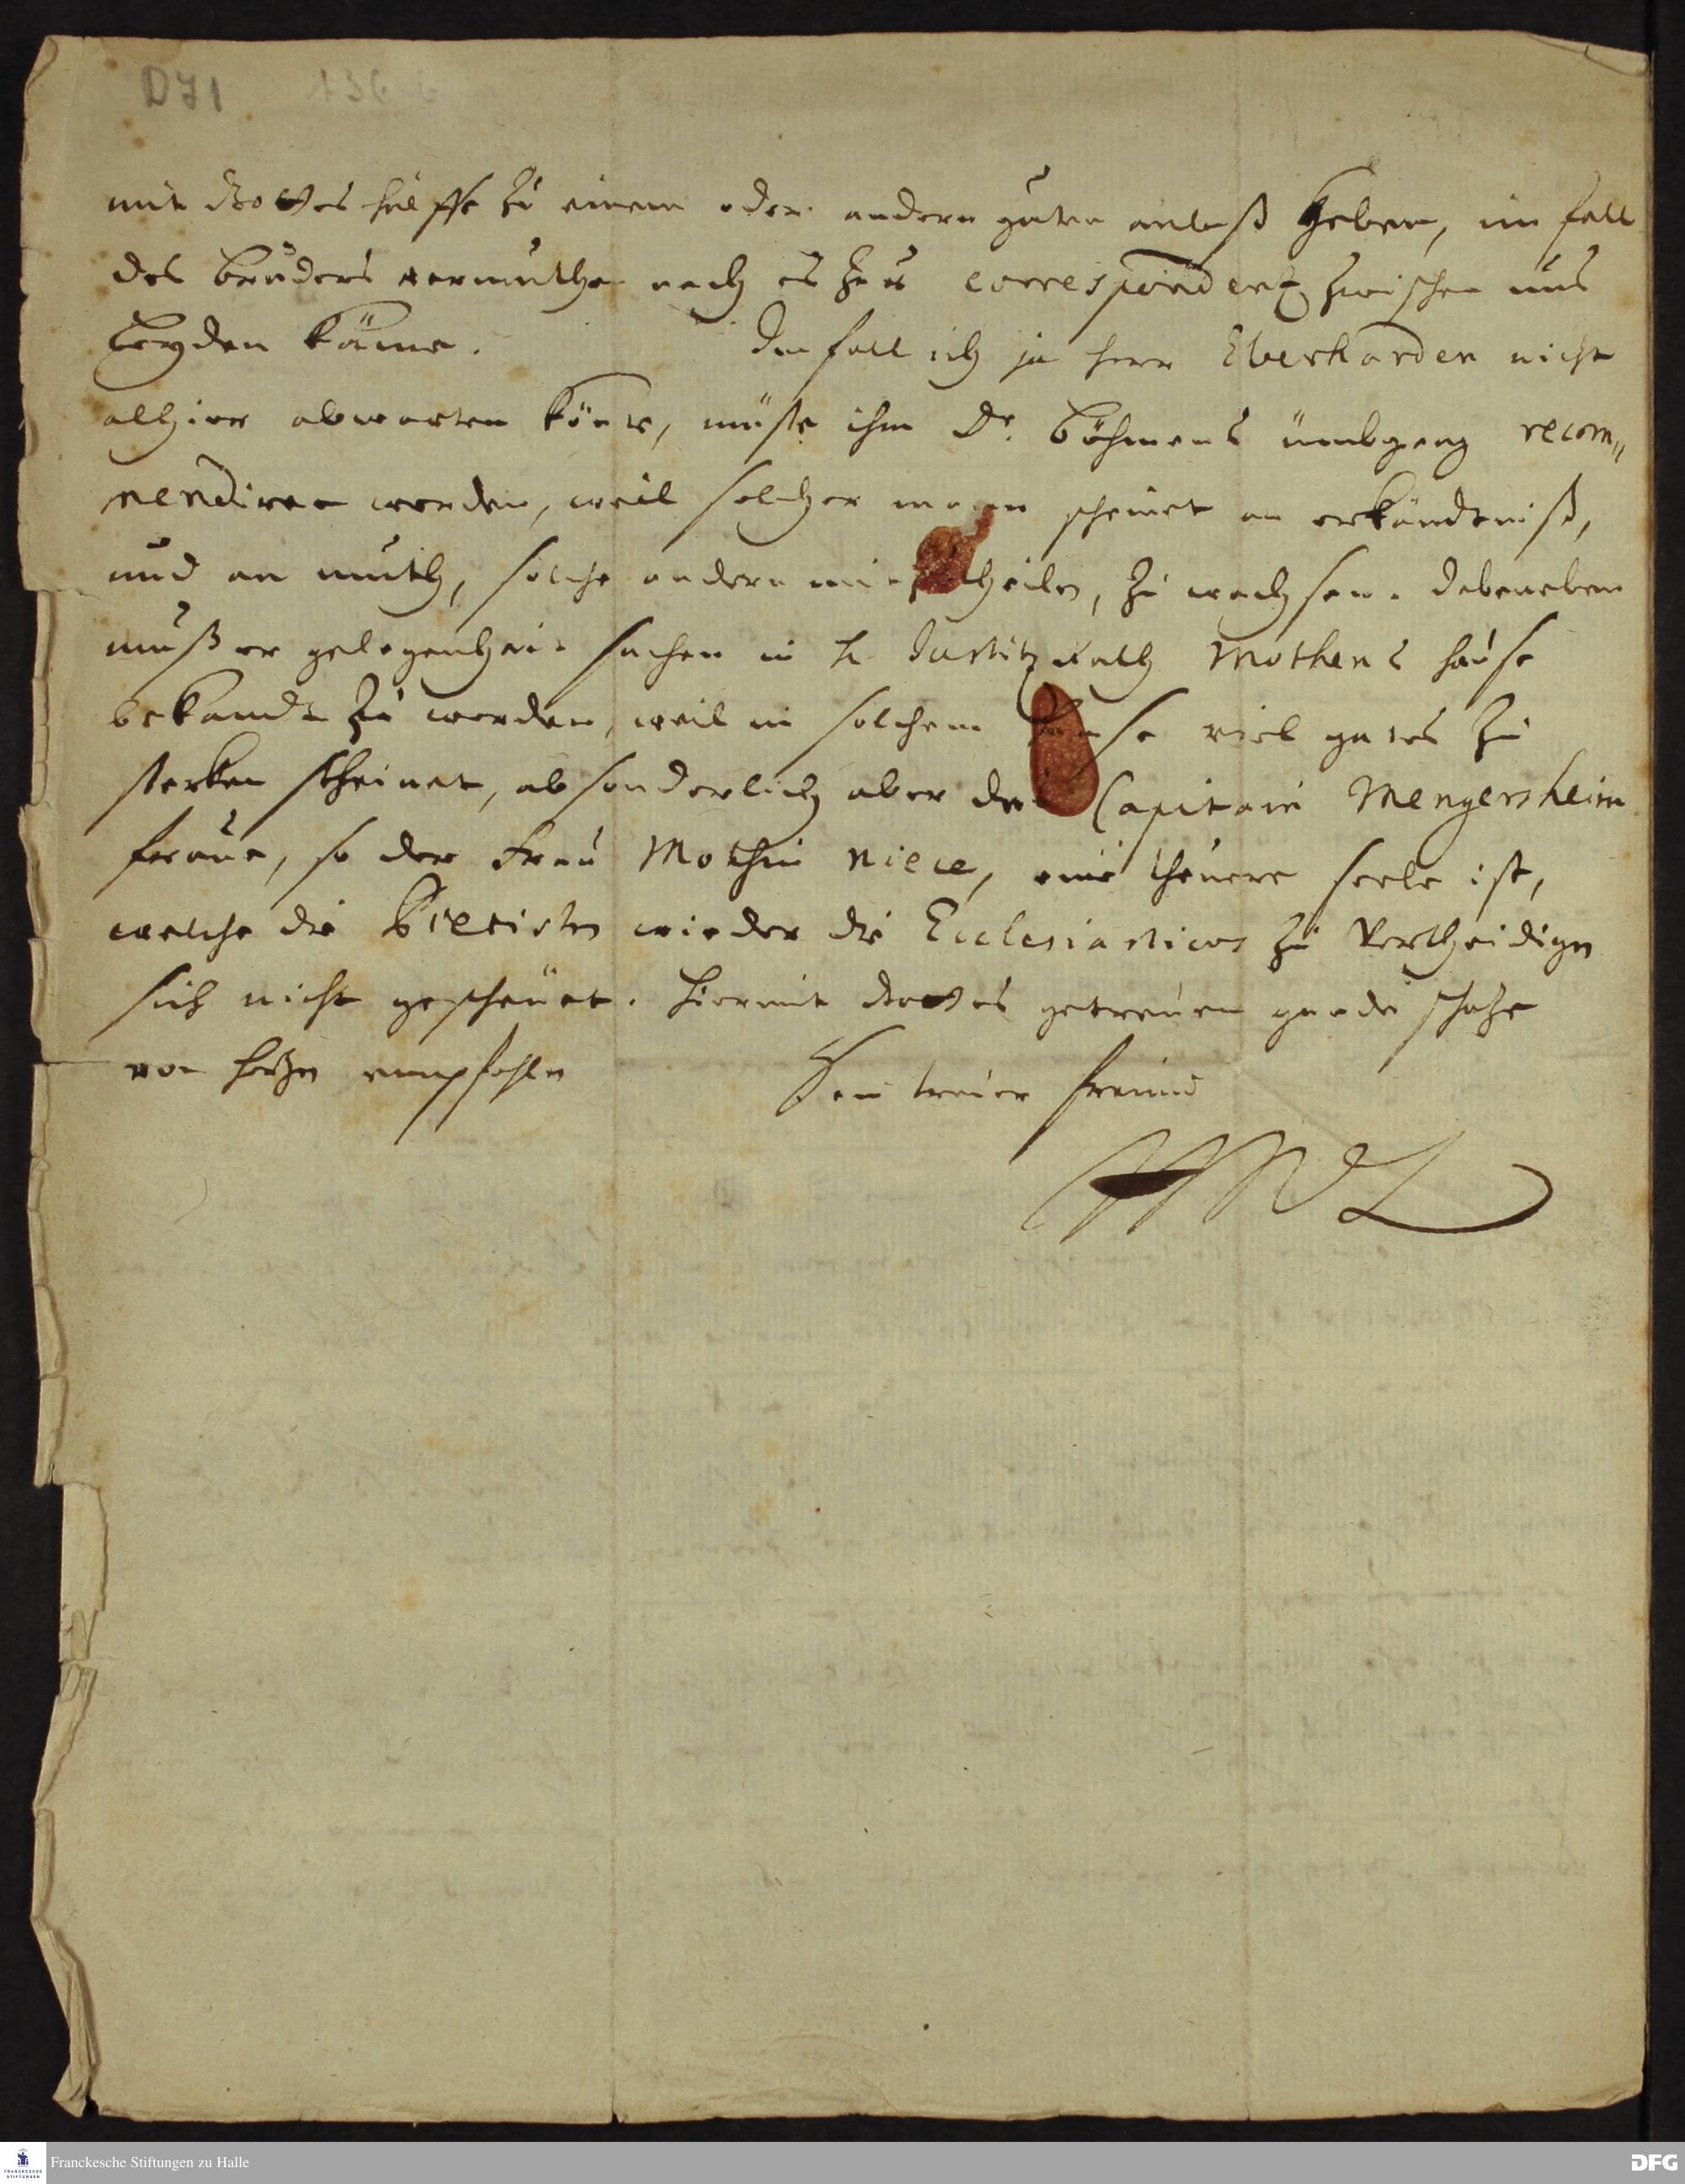 D71 136
mit Gottes hülffe zu einem oder andern guten anlaß geben, im fall
des bruders vermuthen nach es zur correspondentz zwischen uns
beyden käme. Im fall ich ja herr Eberharden nicht
alhier abwarten könte, müste ihm Dr. Böhmens umbgang recom„
mendiret werden, weil solcher mann scheinet an erkändtniß,
und an muth, solche andern mitzutheilen, zu wachsen. Dabeneben
muß er gelegenheit suchen in h. Justitz Rath Mothens hause
bekandt zu werden, weil in solchem hause viel gutes zu
stecken scheinet, absonderlich aber des Capitain Mengersheim
fraue, so der Frau Mothin niece, eine theuere seele ist,
welche die Pietisten wieder die Ecclesiasticos zu vertheidigen
sich nicht gescheuet. Hiermit Gottes getreuen gnade schutze
von hertzen empfohlen
Sein treuer freund
HWL
Franckesche Stiftungen zu Halle
FRANCKESCHE STIFTUNGEN
DFG